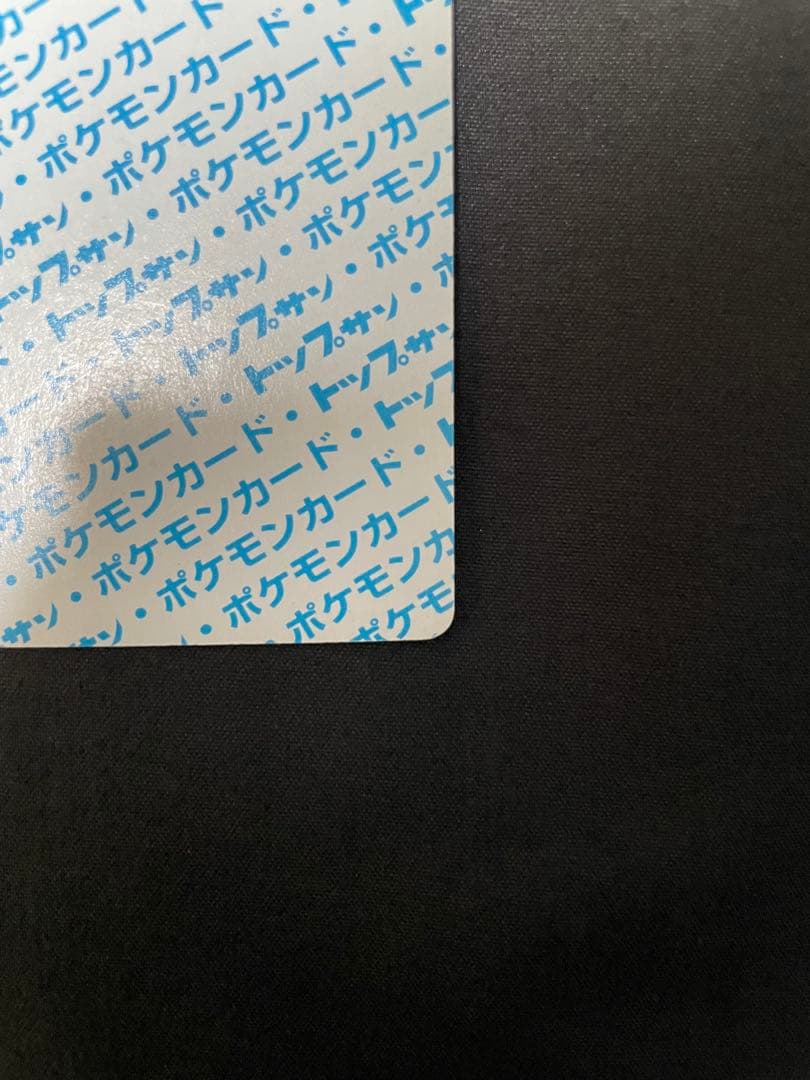 カー
モンカード
ポケモンカード・ト
・ポケモンカード・ト
サン・ポケモンカード・
トップサン・ポケモンカー
・トップサン・ポケモン
ード・トップサン・ポケモ
ンカード・トップサン・ポ
ケモンカード・トップサン
・ポケモンカード・トップ
サン・ポケモンカード・ト
・ポケモンカード
・ポケモンカ
ポケモ